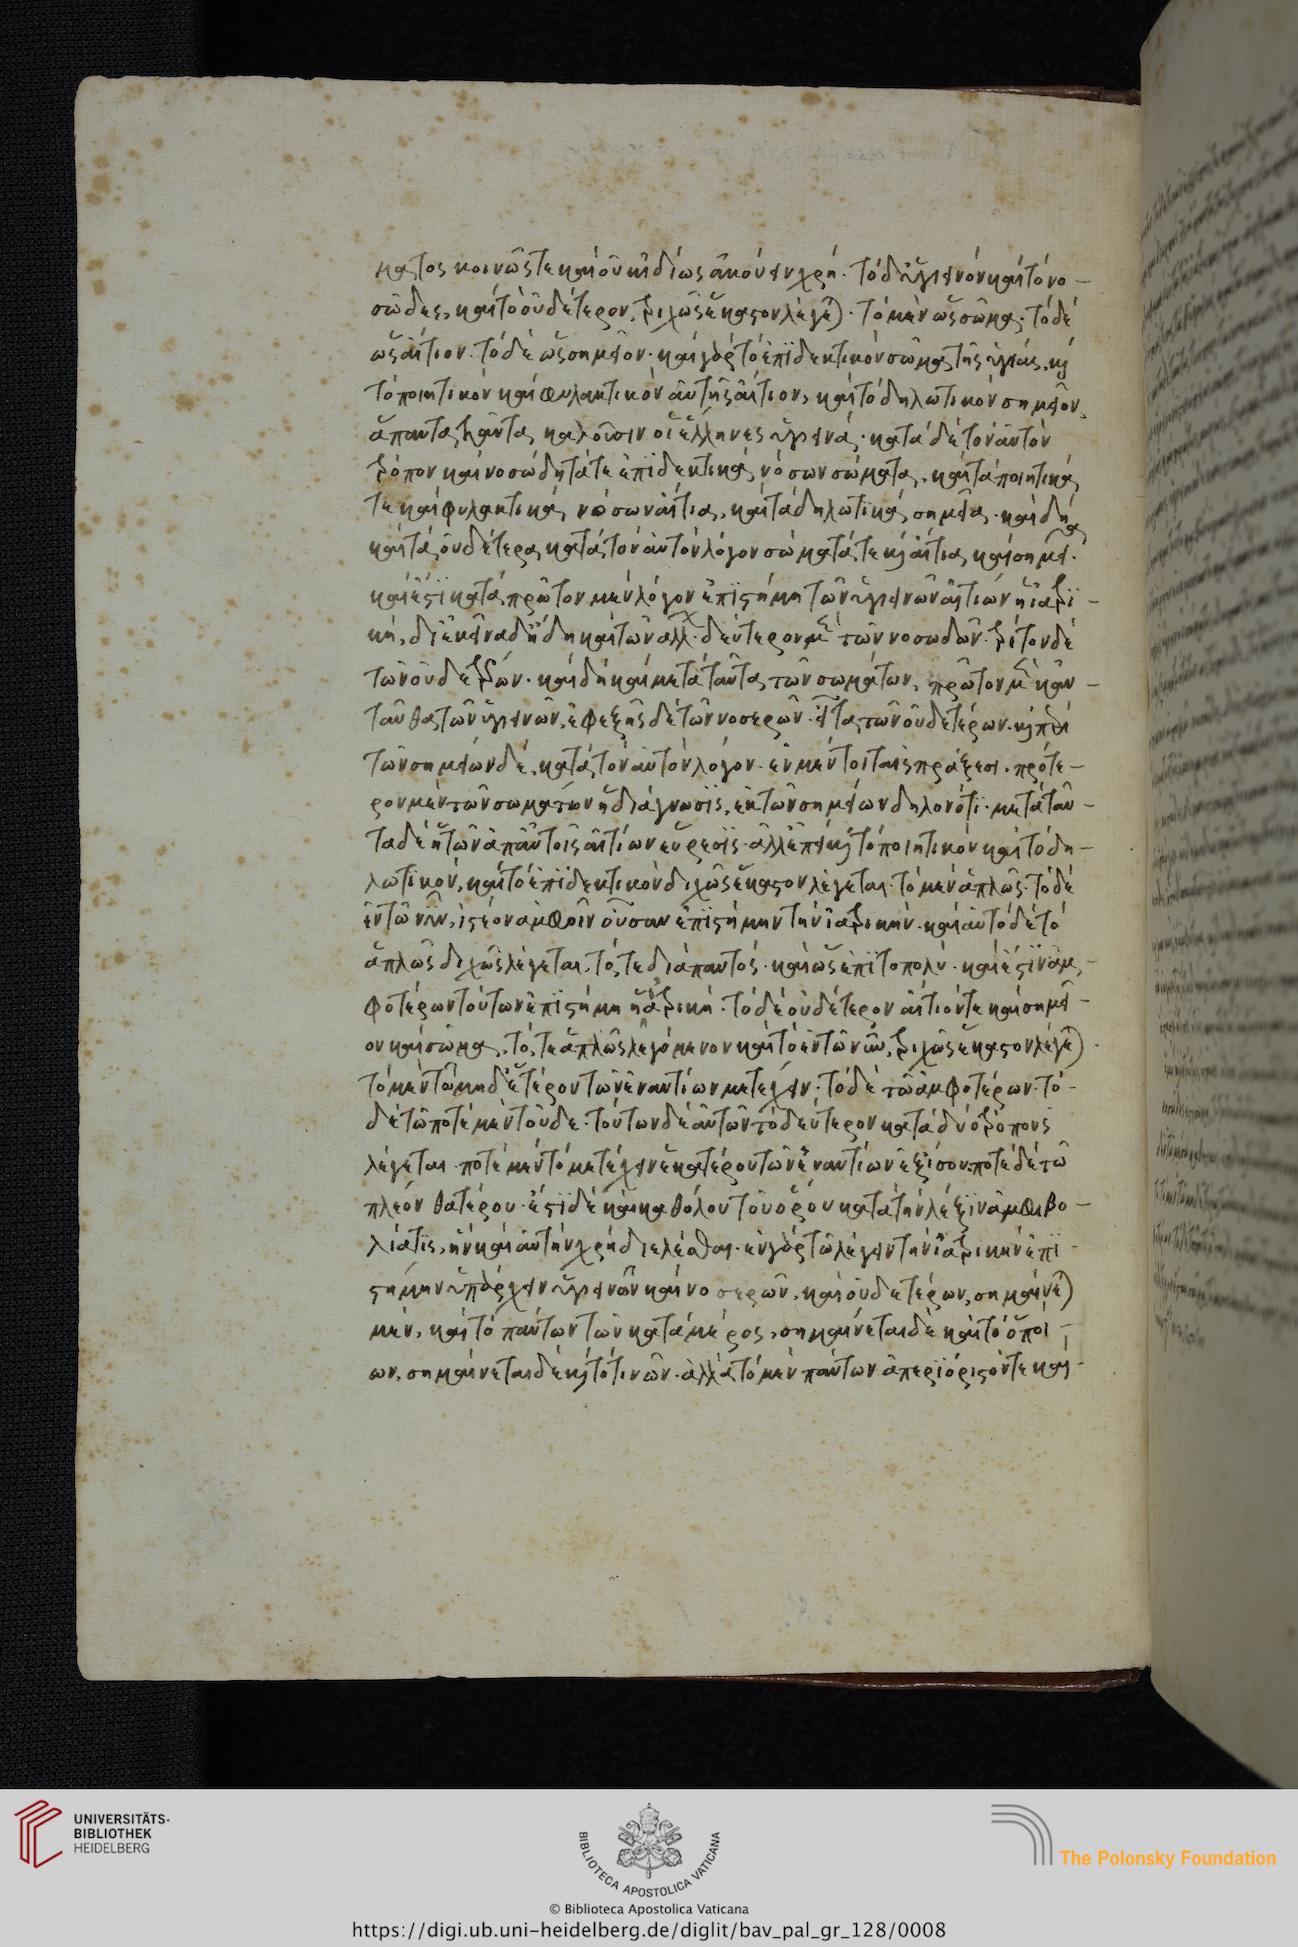 ματος κοινῶς τε καὶ οὐκ ἰδίως ἀκούειν χρή· τὸ δ' ὑγιεινὸν καὶ τὸ νο-
σῶδες, καὶ τὸ οὐδέτερον, τριχῶς ἕκαστον λέγε)· τὸ μὲν ὡς σῶμα· τὸ δὲ
ὡς αἴτιον· τὸ δὲ ὡς σημεῖον· καὶ γὰρ τὸ ἐπιδεκτικὸν σῶμα τῆς ὑγείας, κ
τὸ ποιητικὸν καὶ φυλακτικὸν αὐτῆς αἴτιον, καὶ τὸ δηλωτικὸν σημεῖον,
ἅπαντα ταῦτα καλοῦσιν οἱ ἕλληνες ὑγιεινά· κατὰ δὲ τὸν αὐτὸν
τρόπον καὶ νοσώδη τά τε ἐπιδεκτικὰ νόσων σώματα, καὶ τὰ ποιητικά
τε καὶ φυλακτικὰ νόσων αἴτια, καὶ τὰ δηλωτικὰ σημεῖα· καὶ δὴ
καὶ τὰ οὐδέτερα κατὰ τὸν αὐτὸν λόγον σώματά τε κ αἴτια καὶ σημεῖα·
καὶ ἔστι κατὰ πρῶτον μὲν λόγον ἐπιστήμη τῶν ὑγιεινῶν αἰτιῶν ἡ ἰατρι-
κή, δι' ἐκεῖνα δ' ἤδη καὶ τῶν ἄλλ· δεύτερον μὲν τῶν νοσωδῶν· τρίτον δὲ
τῶν οὐδετέρων· καὶ δὴ καὶ μετὰ ταῦτα τῶν σωμάτων, πρῶτον μὲν κἀν-
ταῦθα τῶν ὑγιεινῶν, ἐφεξῆς δὲ τῶν νοσερῶν· εἶτα τῶν οὐδετέρων· κ ἐπεὶ
τῶν σημείων δὲ, κατὰ τὸν αὐτὸν λόγον· ἐν μέντοι ταῖς πράξεσι, πρότε-
ρον μὲν τῶν σωμάτων ἡ διάγνωσις, ἐκ τῶν σημείων δηλονότι· μετὰ ταῦ-
τα δὲ ἡ τῶν ἐπ' αὐτοῖς αἰτίων εὕρεσις· ἀλλ' ἐπεὶ κ τὸ ποιητικὸν καὶ τὸ δη-
λωτικὸν, καὶ τὸ ἐπιδεκτικὸν διχῶς ἕκαστον λέγεται· τὸ μὲν ἁπλῶς· τὸ δὲ
ἐν τῶ νῦν, ἰστέον ἀμφοῖν οὖσαν ἐπιστήμην τὴν ἰατρικήν· καὶ αὐτὸ δὲ τὸ
ἁπλῶς διχῶς λέγεται, τό, τε διάπαντὸς· καὶ ὡς ἐπὶ τὸ πολύ· καὶ ἔστιν ἀμ-
φοτέρων τούτων ἐπιστήμη ἡ ἰατρική· τὸ δὲ οὐδέτερον αἴτιόν τε καὶ σημεῖ-
ον καὶ σῶμα, τό, τε ἁπλῶς λεγόμενον καὶ τὸ ἐν τῶ νῦν, τριχῶς ἕκαστον λέγε)·
τὸ μὲν τῶ μηδ' ἑτέρου τῶν ἐναντίων μετέχειν· τὸ δὲ τῶ ἀμφοτέρων· τὸ-
δὲ τῶ ποτὲ μὲν τοῦδε· τούτων δὲ αὐτῶν τὸ δεύτερον κατὰ δύο τρόπους
λέγεται· ποτὲ μὲν τὸ μετέχειν ἑκατέρου τῶν ἐναντίων ἐξίσου. ποτὲ δὲ τῶ
πλέον θατέρου· ἔστι δὲ κἀν καθόλου τοῦ ὅρου κατὰ τὴν λέξιν ἀμφιβο-
λία τις, ἣν καὶ αὐτὴν χρὴ διελέσθαι· ἐν γὰρ τῶ λέγειν τὴν ἰατρικὴν ἐπι-
στήμην ὑπάρχειν ὑγιεινῶν καὶ νοσερῶν, καὶ οὐδετέρων, σημαίνε)
μὲν, καὶ τὸ πάντων τῶν κατὰ μέρος, σημαίνεται δὲ καὶ τὸ ὁποί-
ων, σημαίνεται δὲ κ τὸ τινῶν· ἀλλὰ τὸ μὲν πάντων ἀπεριόριστόν τε καὶ-
UNIVERSITÄTS-
BIBLIOTHEK
HEIDELBERG
BIBLIOTECA APOSTOLICA VATICANA
The Polonsky Foundation
© Biblioteca Apostolica Vaticana
https://digi.ub.uni-heidelberg.de/diglit/bav_pal_gr_128/0008